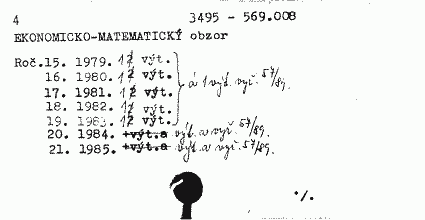 4 3495 - 569.008
EKONOMICKO-MATEMATICKÝ obzor
Roč.15. 1979. 12 výt.
16. 1980. 12 výt.
17. 1981. 12 výt. á 1 výt. vyř. 57/89.
18. 1982. 12 výt.
19. 1983. 12 výt.
20. 1984. +výt.a výt. a vyř. 57/89.
21. 1985. +výt.a výt. a vyř. 57/89.
•/.